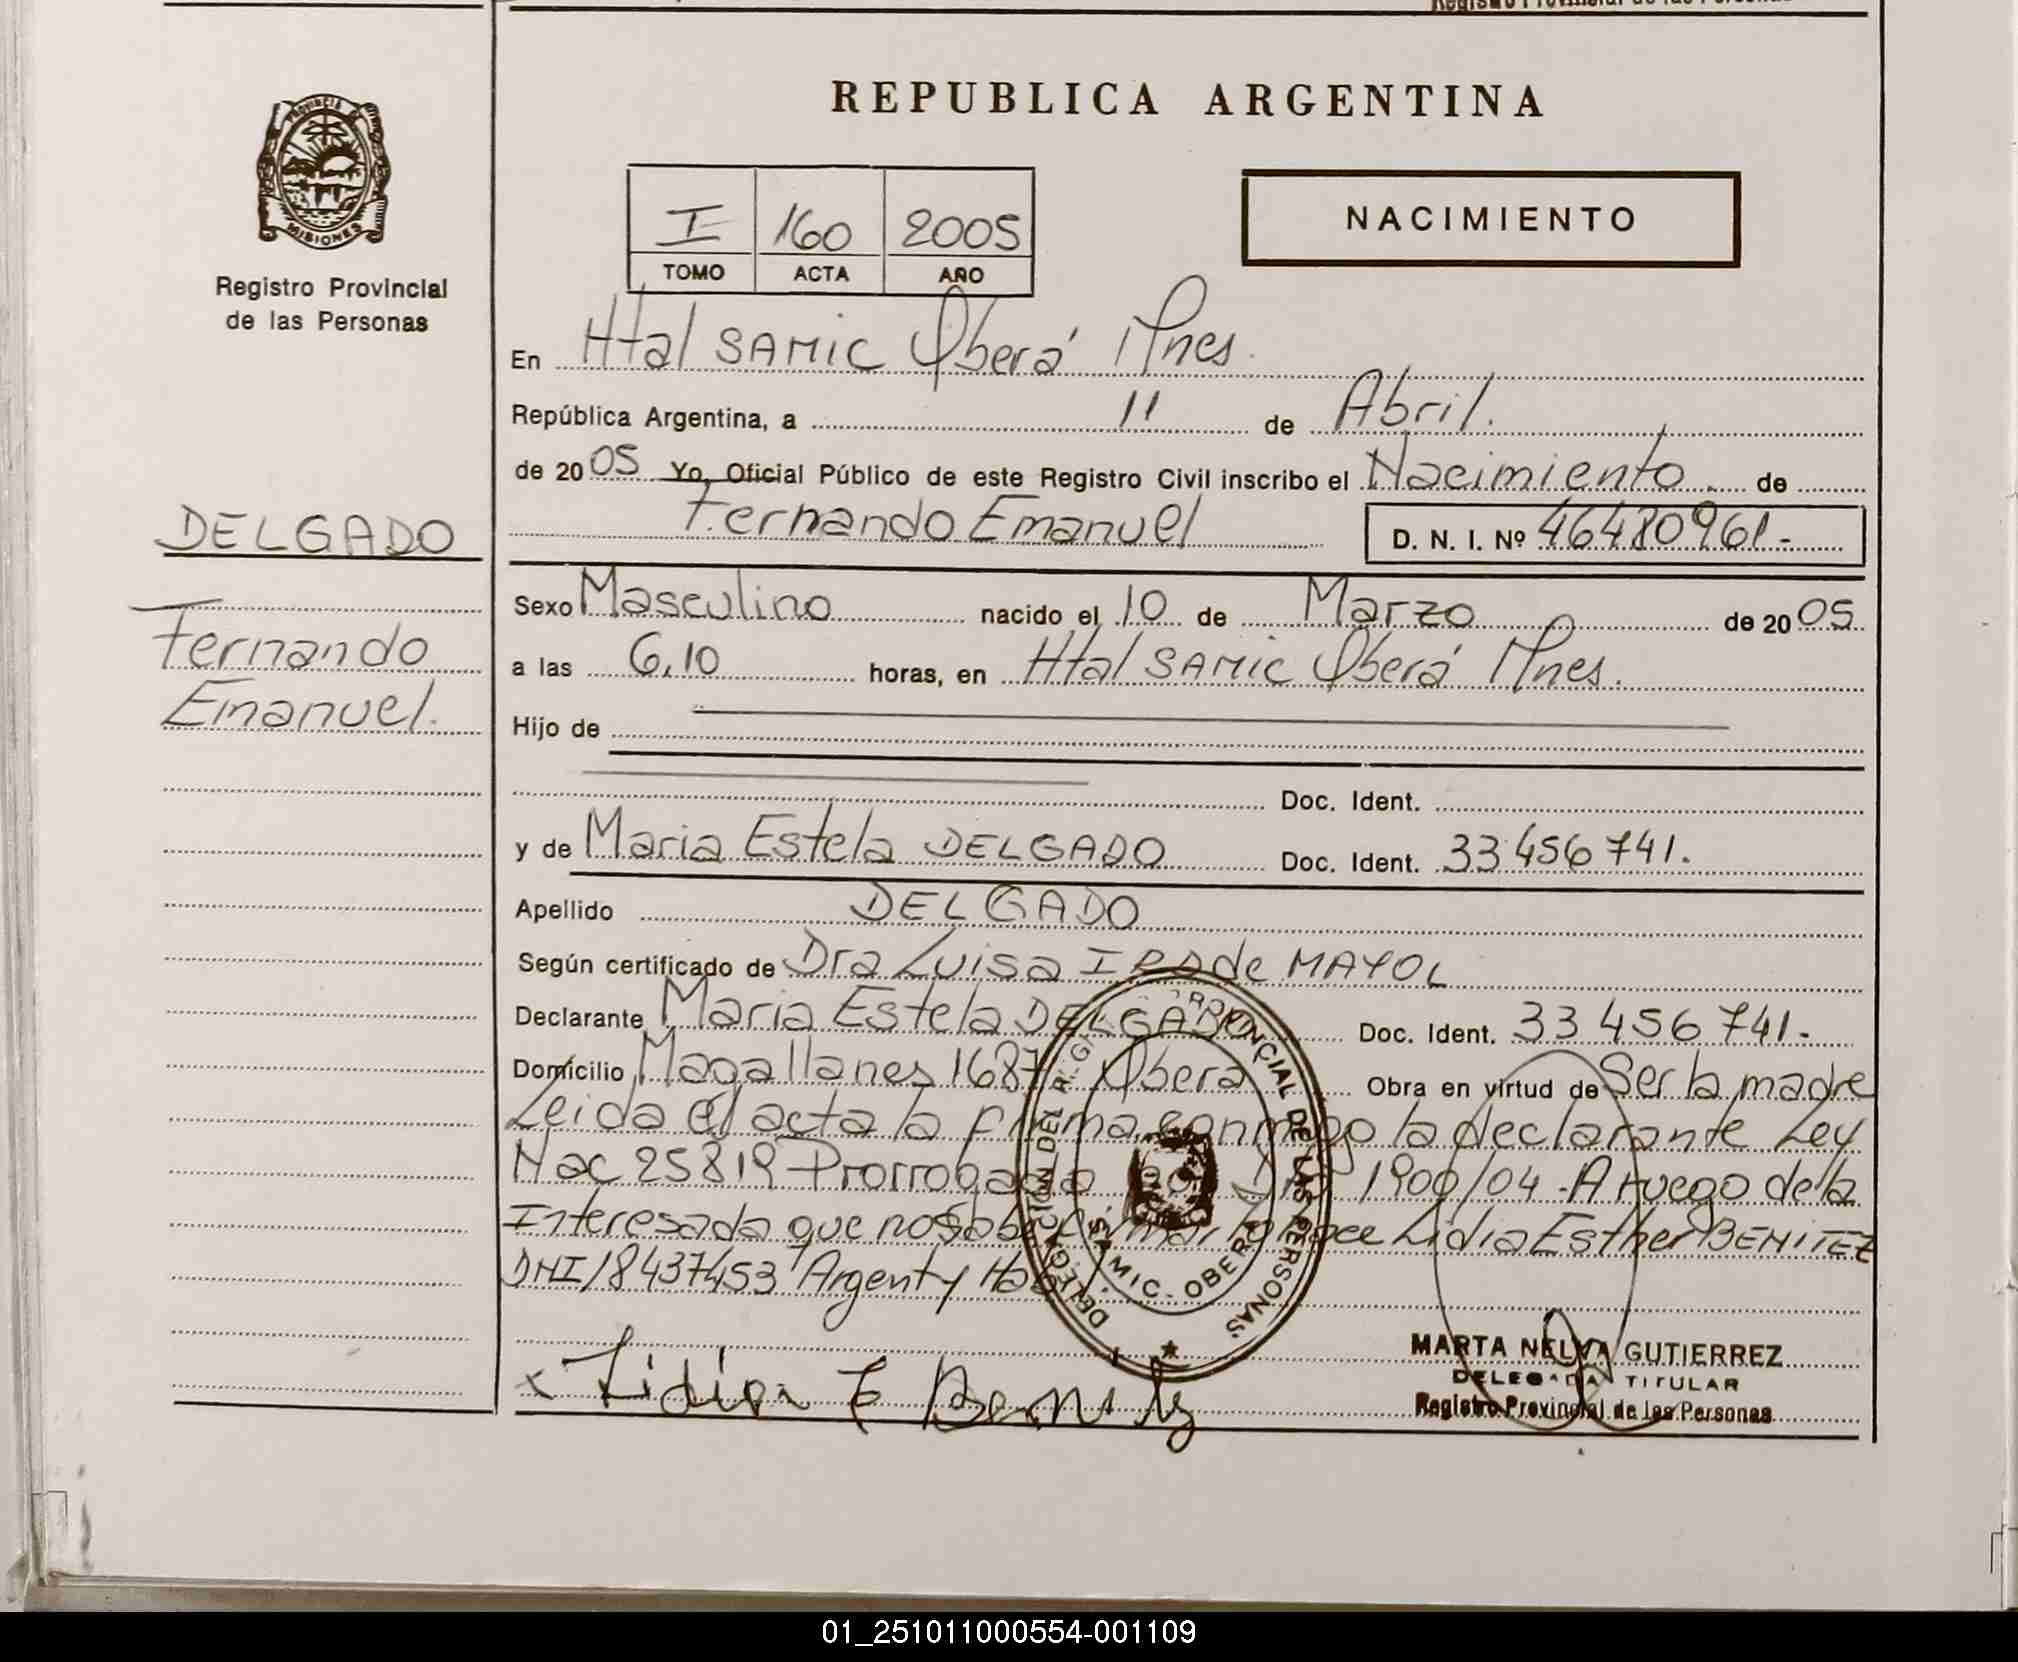 Registro Provincial de las Personas
REPUBLICA ARGENTINA
PROVINCIA
MISIONES
Registro Provincial
de las Personas
I 160 2005
TOMO ACTA AÑO
NACIMIENTO
En Htal SAMIC Oberá Mnes.
República Argentina, a 11 de Abril.
de 2005 Yo, Oficial Público de este Registro Civil inscribo el Nacimiento de
Fernando Emanuel D. N. I. Nº 46480961-
DELGADO
Fernando
Emanuel.
Sexo Masculino nacido el 10 de Marzo de 2005
a las 6,10 horas, en Htal SAMIC Oberá Mnes.
Hijo de
Doc. Ident.
y de Maria Estela DELGADO Doc. Ident. 33456741.
Apellido DELGADO
Según certificado de Dra Luisa de MAYOL
Declarante Maria Estela DELGADO Doc. Ident. 33456741-
Domicilio Magallanes 1687 Oberá Obra en virtud de Ser la madre
Leida el acta la firma conmigo la declarante Ley
Nac 25819 Prorrogada 1900/04-A ruego de la
Interesada que no sabe firmar lo hace Lidia Esther BENITEZ
DNI 18437453 Argent y Hab.
DELEGACION DEL REGISTRO PROVINCIAL DE LAS PERSONAS
SAMIC - OBERA
x Lidia E Benitez
MARTA NELVA GUTIERREZ
DELEGADA TITULAR
Registro Provincial de las Personas
01_251011000554-001109